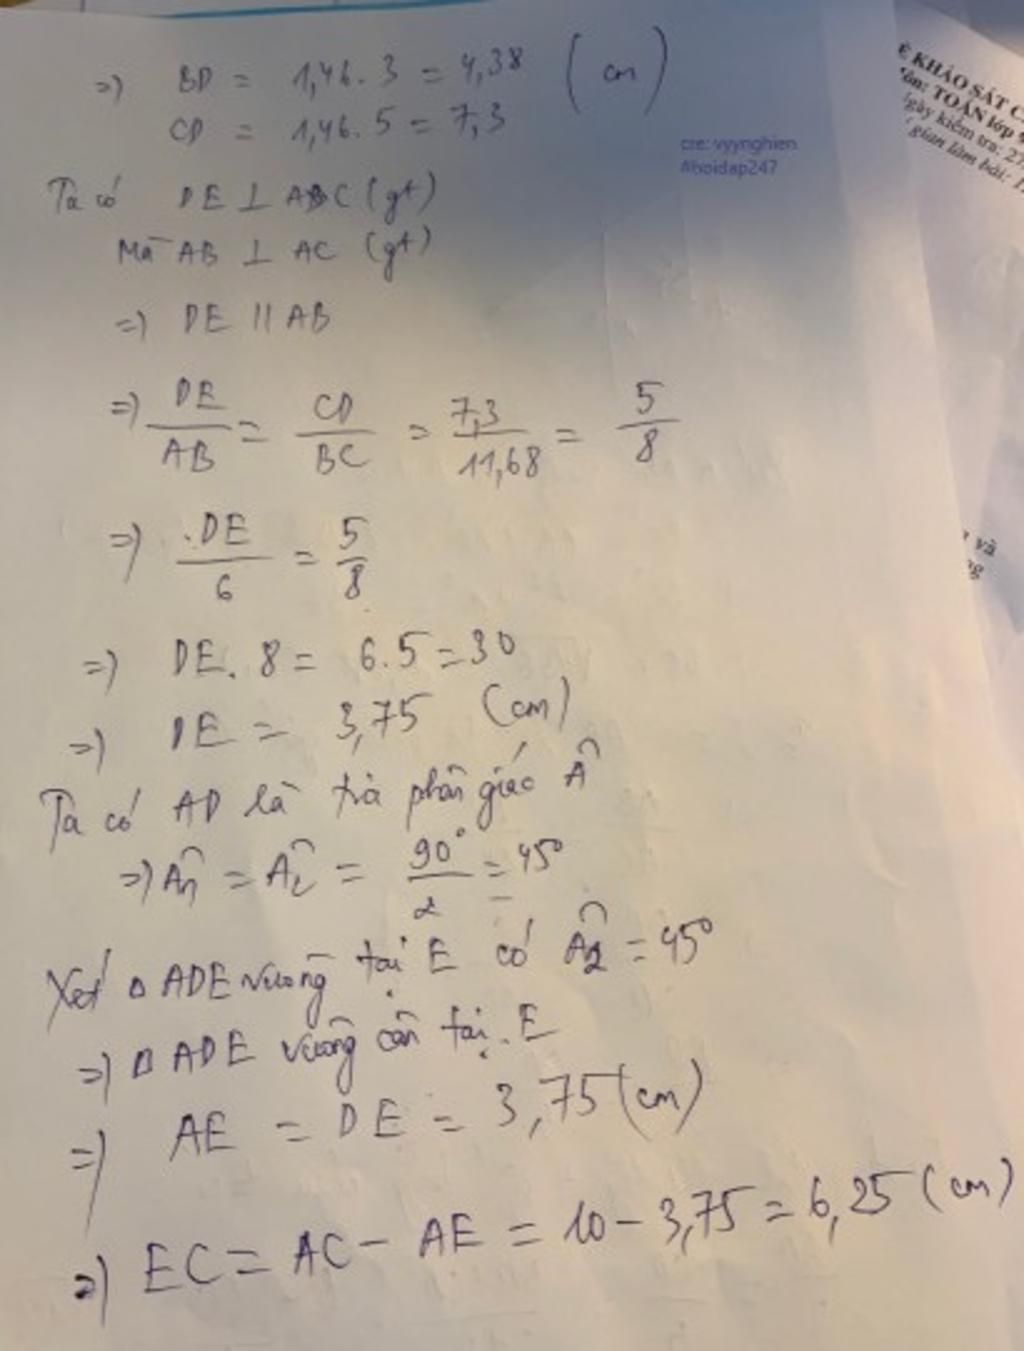 =) BD = 1,46.3 = 4,38 (cm)
CD = 1,46.5 = 7,3
cre: vyynghien
#hoidap247
Ta có DE ⊥ AC (gt)
Mà AB ⊥ AC (gt)
=) DE // AB
=) DE/AB = CD/BC = 7,3/11,68 = 5/8
=) DE/6 = 5/8
=) DE. 8 = 6.5 = 30
=) DE = 3,75 (cm)
Ta có AD là tia phân giác Â
=) Â1 = Â2 = 90°/2 = 45°
Xét Δ ADE vuông tại E có Â2 = 45°
=) Δ ADE vuông cân tại E
=) AE = DE = 3,75 (cm)
=) EC = AC - AE = 10 - 3,75 = 6,25 (cm)
KHẢO SÁT
TOÁN lớp
gày kiểm tra: 27
gian làm bài:
và